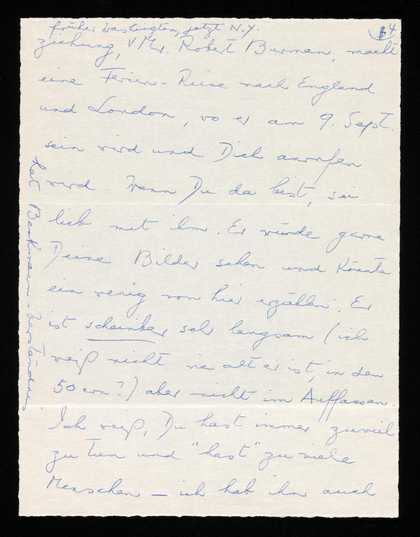 früher Washington, jetzt N.Y.
64
ziehung, Mr. Robert Berman, macht
eine Ferien-Reise nach England
und London, wo er am 9. Sept.
sein wird und Dich anrufen
wird. Wenn Du da bist, sei
lieb mit ihm. Er würde gerne
Deine Bilder sehen und könnte
ein wenig von hier erzählen. Er
ist scheinbar sehr langsam (ich
weiß nicht wie alt er ist, in den
50ern?) aber nicht im Auffassen
Ich weiß, Du hast immer zuviel
zu tun und "hast" zu viele
Menschen – ich hab ihn auch
hat